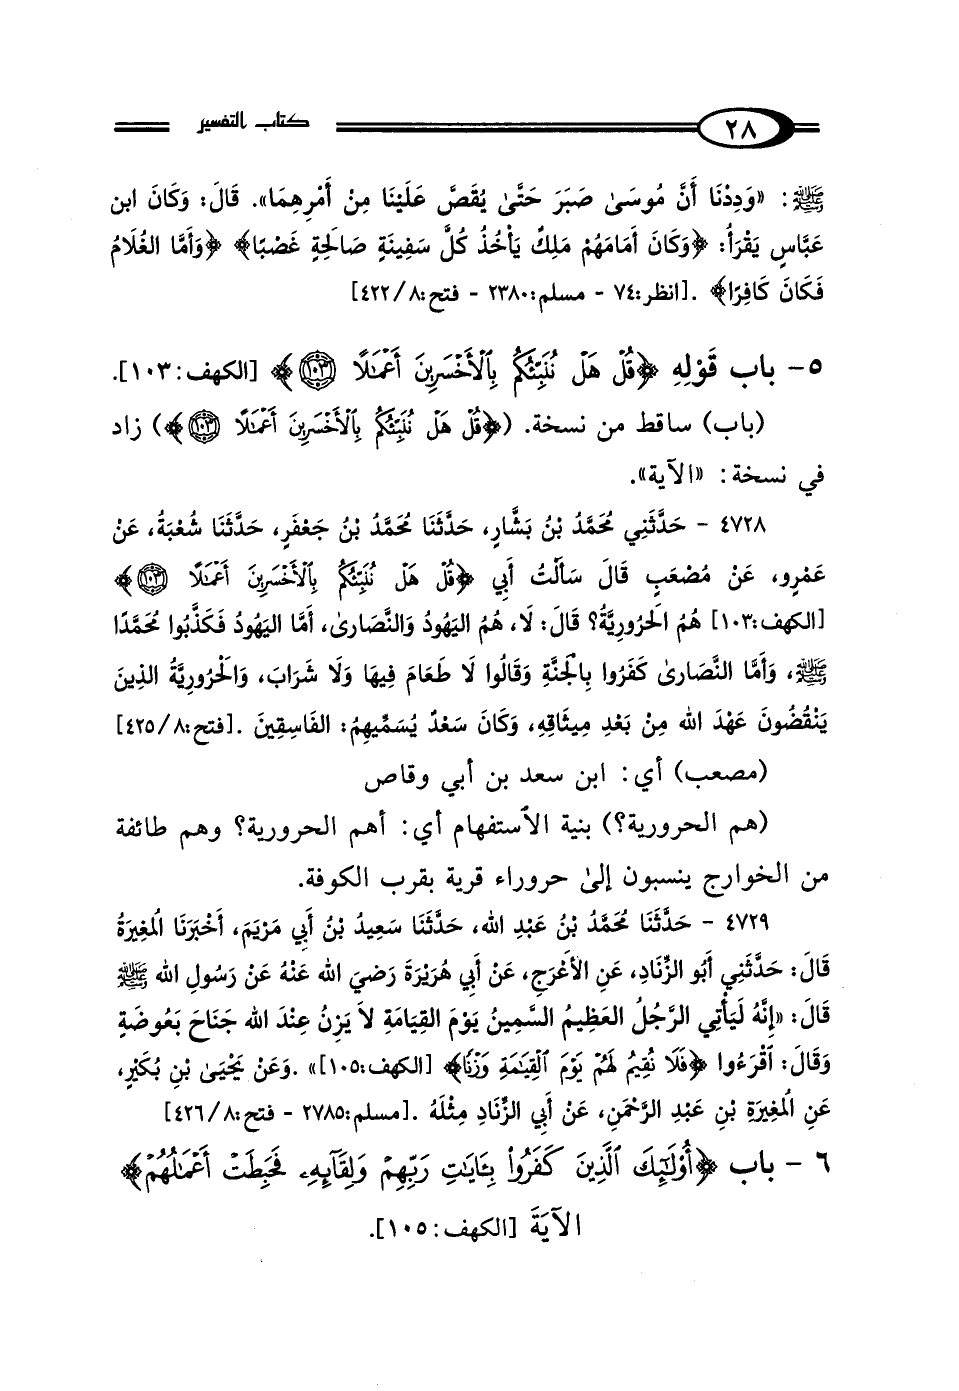 ٢٨ كتاب التفسير
ﷺ: «وَدِدْنَا أَنَّ مُوسَىٰ صَبَرَ حَتَّىٰ يُقَصَّ عَلَيْنَا مِنْ أَمْرِهِمَا». قَالَ: وَكَانَ ابن
عَبَّاسٍ يَقْرَأُ: ﴿وَكَانَ أَمَامَهُمْ مَلِكٌ يَأْخُذُ كُلَّ سَفِينَةٍ صَالِحَةٍ غَصْبًا﴾ ﴿وَأَمَّا الغُلَامُ
فَكَانَ كَافِرًا﴾ .[انظر:٧٤ - مسلم:٢٣٨٠ - فتح:٤٢٢/٨]
٥- باب قَوْلِهِ ﴿قُلْ هَلْ نُنَبِّئُكُم بِٱلْأَخْسَرِينَ أَعْمَٰلًا ١٠٣﴾ [الكهف: ١٠٣].
(باب) ساقط من نسخة. (﴿قُلْ هَلْ نُنَبِّئُكُم بِٱلْأَخْسَرِينَ أَعْمَٰلًا ١٠٣﴾) زاد
في نسخة: «الآية».
٤٧٢٨ - حَدَّثَنِي مُحَمَّدُ بْنُ بَشَّارٍ، حَدَّثَنَا مُحَمَّدُ بْنُ جَعْفَرٍ، حَدَّثَنَا شُعْبَةُ، عَنْ
عَمْرٍو، عَنْ مُصْعَبٍ قَالَ سَأَلْتُ أَبِي ﴿قُلْ هَلْ نُنَبِّئُكُم بِٱلْأَخْسَرِينَ أَعْمَٰلًا ١٠٣﴾
[الكهف:١٠٣] هُمُ الحَرُورِيَّةُ؟ قَالَ: لَا، هُمُ اليَهُودُ وَالنَّصَارىٰ، أَمَّا اليَهُودُ فَكَذَّبُوا مُحَمَّدًا
ﷺ، وَأَمَّا النَّصَارىٰ كَفَرُوا بِالْجَنَّةِ وَقَالُوا لَا طَعَامَ فِيهَا وَلَا شَرَابَ، وَالْحَرُورِيَّةُ الذِينَ
يَنْقُضُونَ عَهْدَ الله مِنْ بَعْدِ مِيثَاقِهِ، وَكَانَ سَعْدٌ يُسَمِّيهِمُ: الفَاسِقِينَ .[فتح:٤٢٥/٨]
(مصعب) أي: ابن سعد بن أبي وقاص
(هم الحرورية؟) بنية الاستفهام أي: أهم الحرورية؟ وهم طائفة
من الخوارج ينسبون إلىٰ حروراء قرية بقرب الكوفة.
٤٧٢٩ - حَدَّثَنَا مُحَمَّدُ بْنُ عَبْدِ الله، حَدَّثَنَا سَعِيدُ بْنُ أَبِي مَرْيَمَ، أَخْبَرَنَا الْمُغِيرَةُ
قَالَ: حَدَّثَنِي أَبُو الزِّنَادِ، عَنِ الأَعْرَجِ، عَنْ أَبِي هُرَيْرَةَ رَضِيَ الله عَنْهُ عَنْ رَسُولِ الله ﷺ
قَالَ: «إِنَّهُ لَيَأْتِي الرَّجُلُ العَظِيمُ السَّمِينُ يَوْمَ القِيَامَةِ لاَ يَزِنُ عِنْدَ الله جَنَاحَ بَعُوضَةٍ
وَقَالَ: اقْرَءُوا ﴿فَلَا نُقِيمُ لَهُمْ يَوْمَ ٱلْقِيَٰمَةِ وَزْنًا﴾ [الكهف:١٠٥]» .وَعَنْ يَحْيَىٰ بْنِ بُكَيْرٍ،
عَنِ الْمُغِيرَةِ بْنِ عَبْدِ الرَّحْمَنِ، عَنْ أَبِي الزِّنَادِ مِثْلَهُ .[مسلم:٢٧٨٥ - فتح:٤٢٦/٨]
٦ - باب ﴿أُوْلَٰٓئِكَ ٱلَّذِينَ كَفَرُواْ بِـَٔايَٰتِ رَبِّهِمْ وَلِقَآئِهِۦ فَحَبِطَتْ أَعْمَٰلُهُمْ﴾
الآيَةَ [الكهف: ١٠٥].